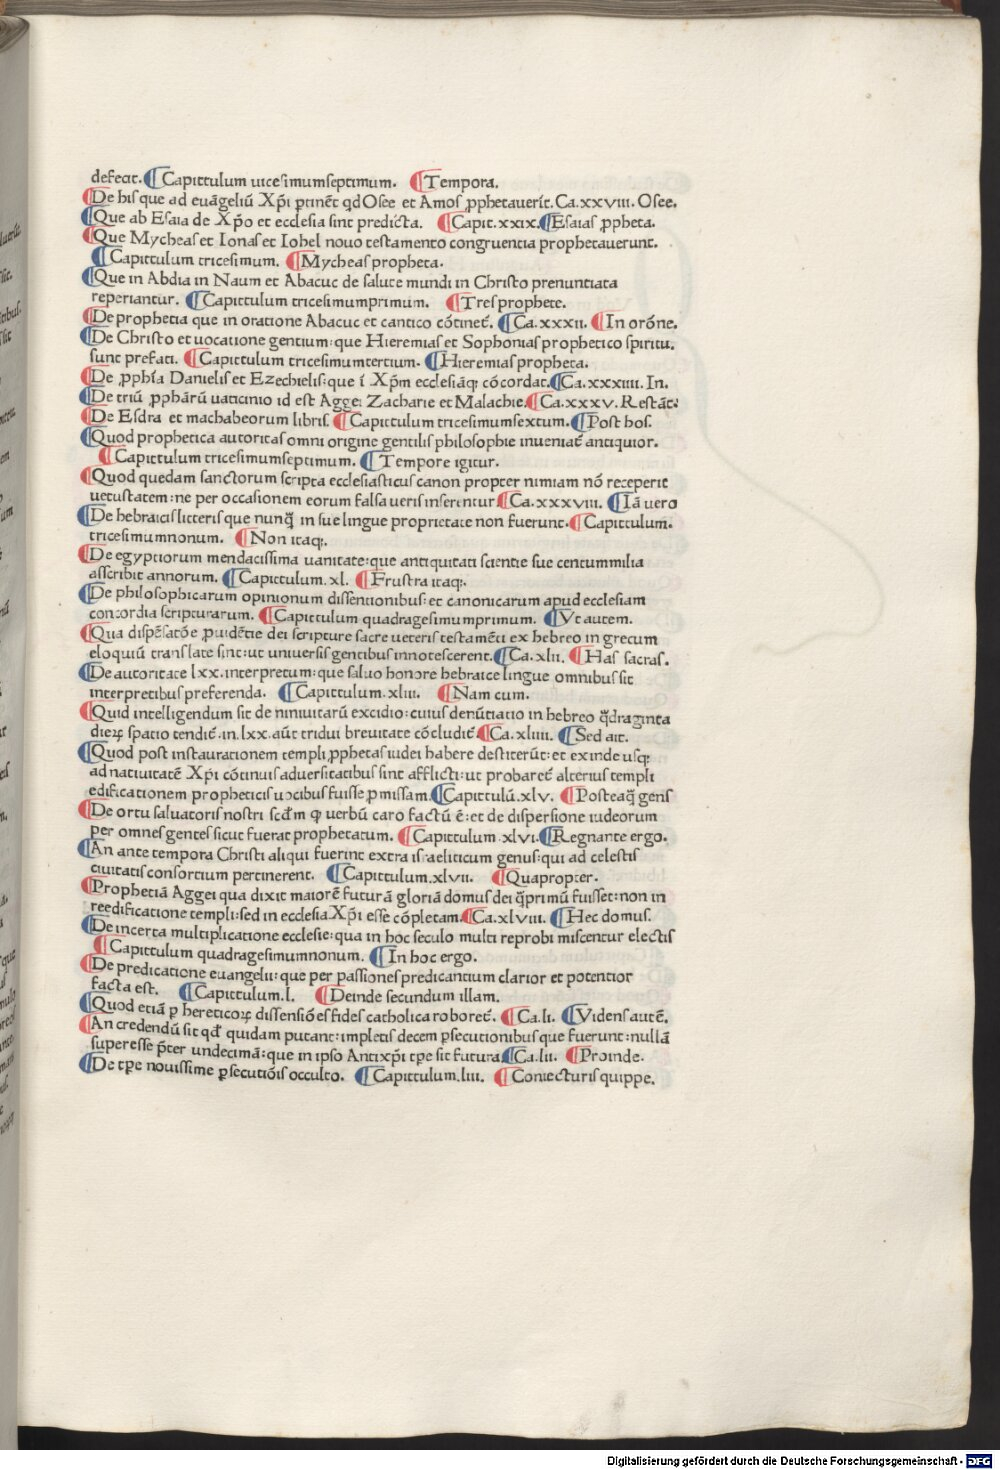 defecit. ¶Capittulum uicesimumseptimum. ¶Tempora.
¶De his que ad euāgeliū Xp̄i ꝑtinēt qđ Osee et Amos ꝓphetauerīt. Ca. xxviii. Osee.
¶Que ab Esaia de Xp̄o et ecclesia sint predicta. ¶Capit. xxix. ¶Esaias ꝓpheta.
¶Que Mycheas et Ionas et Iohel nouo testamento congruentia prophetauerunt.
¶Capittulum tricesimum. ¶Mycheas propheta.
¶Que in Abdia in Naum et Abacuc de salute mundi in Christo prenuntiata
reperiantur. ¶Capittulum tricesimumprimum. ¶Tres prophete.
¶De prophetia que in oratione Abacuc et cantico cōtinet̄. ¶Ca. xxxii. ¶In orōne.
¶De Christo et uocatione gentium: que Hieremias et Sophonias prophetico spiritu.
sunt prefati. ¶Capittulum tricesimumtertium. ¶Hieremias propheta.
¶De ꝓph̄ia Danielis et Ezechielis: que ī Xp̄m ecclesiāq; cōcordat. ¶Ca. xxxiiii. In.
¶De triū ꝓphārū uaticinio id est Aggei Zacharie et Malachie. ¶Ca. xxxv. Restāt:
¶De Esdra et machabeorum libris. ¶Capittulum tricesimumsextum. ¶Post hos.
¶Quod prophetica autoritas omni origine gentilis philosophie inueniat̄ antiquior.
¶Capittulum tricesimumseptimum. ¶Tempore igitur.
¶Quod quedam sanctorum scripta ecclesiasticus canon propter nimiam nō receperit
uetustatem: ne per occasionem eorum falsa ueris inserentur. ¶Ca. xxxviii. ¶Iā uero
¶De hebraicis litteris que nunq̄ in sue lingue proprietate non fuerunt. ¶Capittulum.
tricesimumnonum. ¶Non itaq;.
¶De egyptiorum mendacissima uanitate: que antiquitati scientie sue centummilia
asscribit annorum. ¶Capittulum. xl. ¶Frustra itaq;.
¶De philosophicarum opinionum dissentionibus: et canonicarum apud ecclesiam
concordia scripturarum. ¶Capittulum quadragesimumprimum. ¶Vt autem.
¶Qua dispēsatōe ꝓuidētie dei scripture sacre ueteris testamēti ex hebreo in grecum
eloquiū translate sint: ut uniuersis gentibus innotescerent. ¶Ca. xlii. ¶Has sacras.
¶De autoritate lxx. interpretum: que saluo honore hebraice lingue omnibus sit
interpretibus preferenda. ¶Capittulum. xliii. ¶Nam cum.
¶Quid intelligendum sit de niniuitarū excidio: cuius denūtiatio in hebreo q̄draginta
dieꝝ spatio tendit̄. in. lxx. aūt tridui breuitate cōcludit̄. ¶Ca. xliiii. ¶Sed ait.
¶Quod post instaurationem templi ꝓphetas iudei habere destiterūt: et exinde usq;
ad natiuitatē Xp̄i cōtinuis aduersitatibus sint afflicti: ut probaret̄ alterius templi
edificationem propheticis uocibus fuisse ꝓmissam. ¶Capittulū. xlv. ¶Posteaq̄ gens
¶De ortu saluatoris nostri scđm ꝙ uerbū caro factū ē: et de dispersione iudeorum
per omnes gentes sicut fuerat prophetatum. ¶Capittulum. xlvi. ¶Regnante ergo.
¶An ante tempora Christi aliqui fuerint extra israeliticum genus: qui ad celestis
ciuitatis consortium pertinerent. ¶Capittulum. xlvii. ¶Quapropter.
¶Prophetiā Aggei qua dixit maiorē futurā gloriā domus dei q̄ primū fuisset: non in
reedificatione templi: sed in ecclesia Xp̄i esse cōpletam. ¶Ca. xlviii. ¶Hec domus.
¶De incerta multiplicatione ecclesie: qua in hoc seculo multi reprobi miscentur electis
¶Capittulum quadragesimumnonum. ¶In hoc ergo.
¶De predicatione euangelii: que per passiones predicantium clarior et potentior
facta est. ¶Capittulum. l. ¶Deinde secundum illam.
¶Quod etiā ꝑ hereticoꝝ dissensiōes fides catholica roboret̄. ¶Ca. li. ¶Videns autē.
¶An credendū sit qđ quidam putant: impletis decem ꝑsecutionibus que fuerunt: nullā
superesse p̄ter undecimā: que in ipso Antixp̄i tp̄e sit futura. ¶Ca. lii. ¶Proinde.
¶De tp̄e nouissime ꝑsecutiōis occulto. ¶Capittulum. liii. ¶Coniecturis quippe.
Digitalisierung gefördert durch die Deutsche Forschungsgemeinschaft - DFG